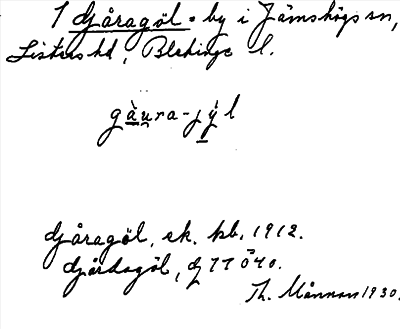 1 Djåragöl - by i Jämshögs sn,
Listers hd, Blekinge l.
gàu̯ra-jy̠̍l
Djåragöl, ek. kb. 1912.
Djårdagöl, dj 77 540.
Th. Månsson 1930.